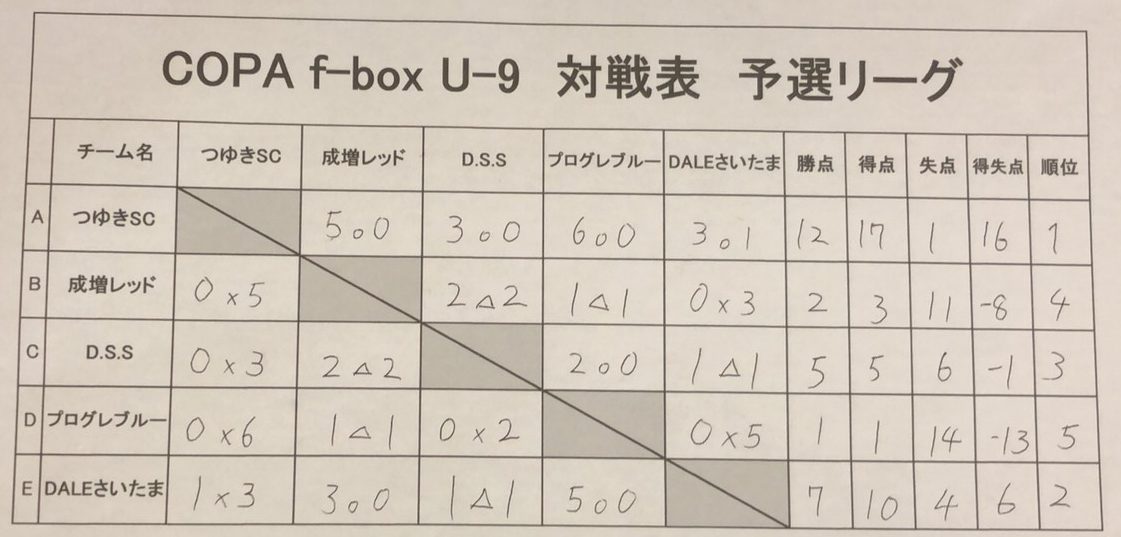 COPA f-box U-9 対戦表 予選リーグ
チーム名 つゆきSC 成増レッド D.S.S プログレブルー DALEさいたま 勝点 得点 失点 得失点 順位
A つゆきSC 5○0 3○0 6○0 3○1 12 17 1 16 1
B 成増レッド 0×5 2△2 1△1 0×3 2 3 11 -8 4
C D.S.S 0×3 2△2 2○0 1△1 5 5 6 -1 3
D プログレブルー 0×6 1△1 0×2 0×5 1 1 14 -13 5
E DALEさいたま 1×3 3○0 1△1 5○0 7 10 4 6 2